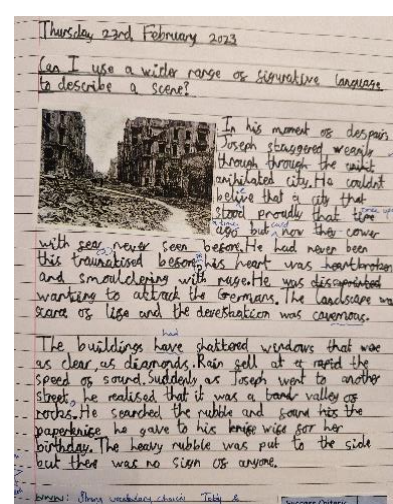 Thursday 23rd February 2023
Can I use a wider range of figurative language
to describe a scene?
In his moment of despair
Joseph staggered wearily
through through the
anihilated city. He couldnt
belive that a city that
stood proudly that time
ago but now they cower
with sea never seen before. He had never been
this traumatised before his heart was heartbroken
and smouldering with rage. He was disapointed
wanting to attack the Germans. The landscape was
scarce of life and the devestation was cavernous.
had
The buildings have shattered windows that was
as clear, as diamonds. Rain fell at a rapid the
speed of sound. Suddenly as Joseph went to another
street, he realised that it was a valley of
rocks. He searched the rubble and found his the
paperknife he gave to his wife for her
birthday. The heavy rubble was put to the side
but there was no sign of anyone.
Strong vocabulary choices Toby
Success Criteria